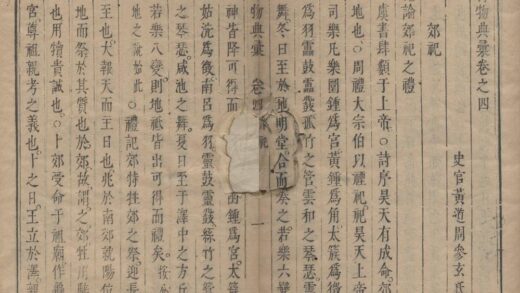 物典彙卷之四
史官黃道周參玄氏
郊祀
論郊祀之禮
虞書肆類于上帝。○詩序昊天有成命郊
地也。○周禮大宗伯以禋祀祀昊天上帝
司樂凡樂圜鍾為宮黃鍾為角太簇為徵
為羽靁鼓靁鼗孤竹之管雲和之琴瑟雲
舞冬日至於地明堂合而奏之若樂六變
物典彙 卷四 郊祀 一
神皆降可得而 函鍾為宮太簇
姑洗為徵南呂為羽靈鼓靈鼗孫竹之管
之琴瑟。咸池之舞。夏日至于澤中之方丘
若樂八變。則地祗皆出可得而禮矣。按
地之說始此。○禮記郊特牲郊之祭迎長
也。大報天而主日也。兆於南郊就陽位
地而祭於其質也。於郊故謂之郊牲用騂
也用犢貴誠也。○卜郊受命于祖廟作龜
宮尊祖親考之義也。卜之日。王立於澤親